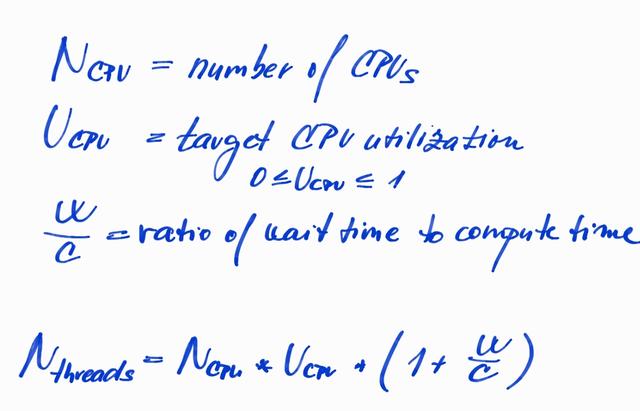 N_CPU = number of CPUs
U_CPU = target CPU utilization
0 ≤ U_CPU ≤ 1
W/C = ratio of wait time to compute time
N_threads = N_CPU * U_CPU * (1 + W/C)